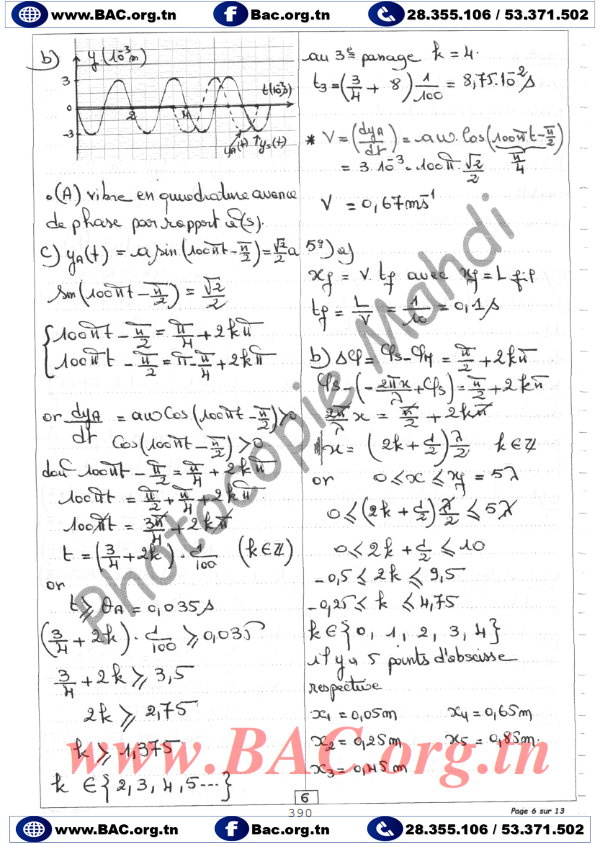 www.BAC.org.tn Bac.org.tn 28.355.106 / 53.371.502
b) y(10⁻³m)
3
-3
2
4
t(10⁻²s)
y_A(t) y_S(t)
• (A) vibre en quadrature avance
de phase par rapport à (S).
c) y_A(t) = a sin(100πt - π/2) = √2/2 a
sin(100πt - π/2) = √2/2
{ 100πt - π/2 = π/4 + 2kπ
100πt - π/2 = π - π/4 + 2kπ
or dy_A/dt = aω Cos(100πt - π/2) > 0
Cos(100πt - π/2) > 0
donc 100πt - π/2 = π/4 + 2kπ
100πt = π/2 + π/4 + 2kπ
100πt = 3π/4 + 2kπ
t = (3/4 + 2k) . 1/100 (k ∈ ℤ)
or
t ≥ θ_A = 0,035 s
(3/4 + 2k) . 1/100 ≥ 0,035
3/4 + 2k ≥ 3,5
2k ≥ 2,75
k ≥ 1,375
k ∈ {2, 3, 4, 5 ...}
au 3è passage k = 4.
t₃ = (3/4 + 8) 1/100 = 8,75.10⁻² s
* V = (dy_A/dt) = aω. Cos(100πt - π/2)
π/4
= 3.10⁻³. 100π. √2/2
V = 0,67 ms⁻¹
5°) a)
x_f = v. t_f avec x_f = L
t_f = L/V = 1/10 = 0,1 s
b) Δφ = φ_S - φ_M = π/2 + 2kπ
φ_S - (-2πx/λ + φ_S) = π/2 + 2kπ
2π/λ x = π/2 + 2kπ
x = (2k + 1/2) λ/2 k ∈ ℤ
or 0 ≤ x ≤ x_f = 5λ
0 ≤ (2k + 1/2) λ/2 ≤ 5λ
0 ≤ 2k + 1/2 ≤ 10
-0,5 ≤ 2k ≤ 9,5
-0,25 ≤ k ≤ 4,75
k ∈ {0, 1, 2, 3, 4}
il y a 5 points d'abscisse
respective
x₁ = 0,05m x₄ = 0,65m
x₂ = 0,25m x₅ = 0,85m.
x₃ = 0,45m
Photocopie Mahdi
www.BAC.org.tn
6
390
Page 6 sur 13
www.BAC.org.tn Bac.org.tn 28.355.106 / 53.371.502